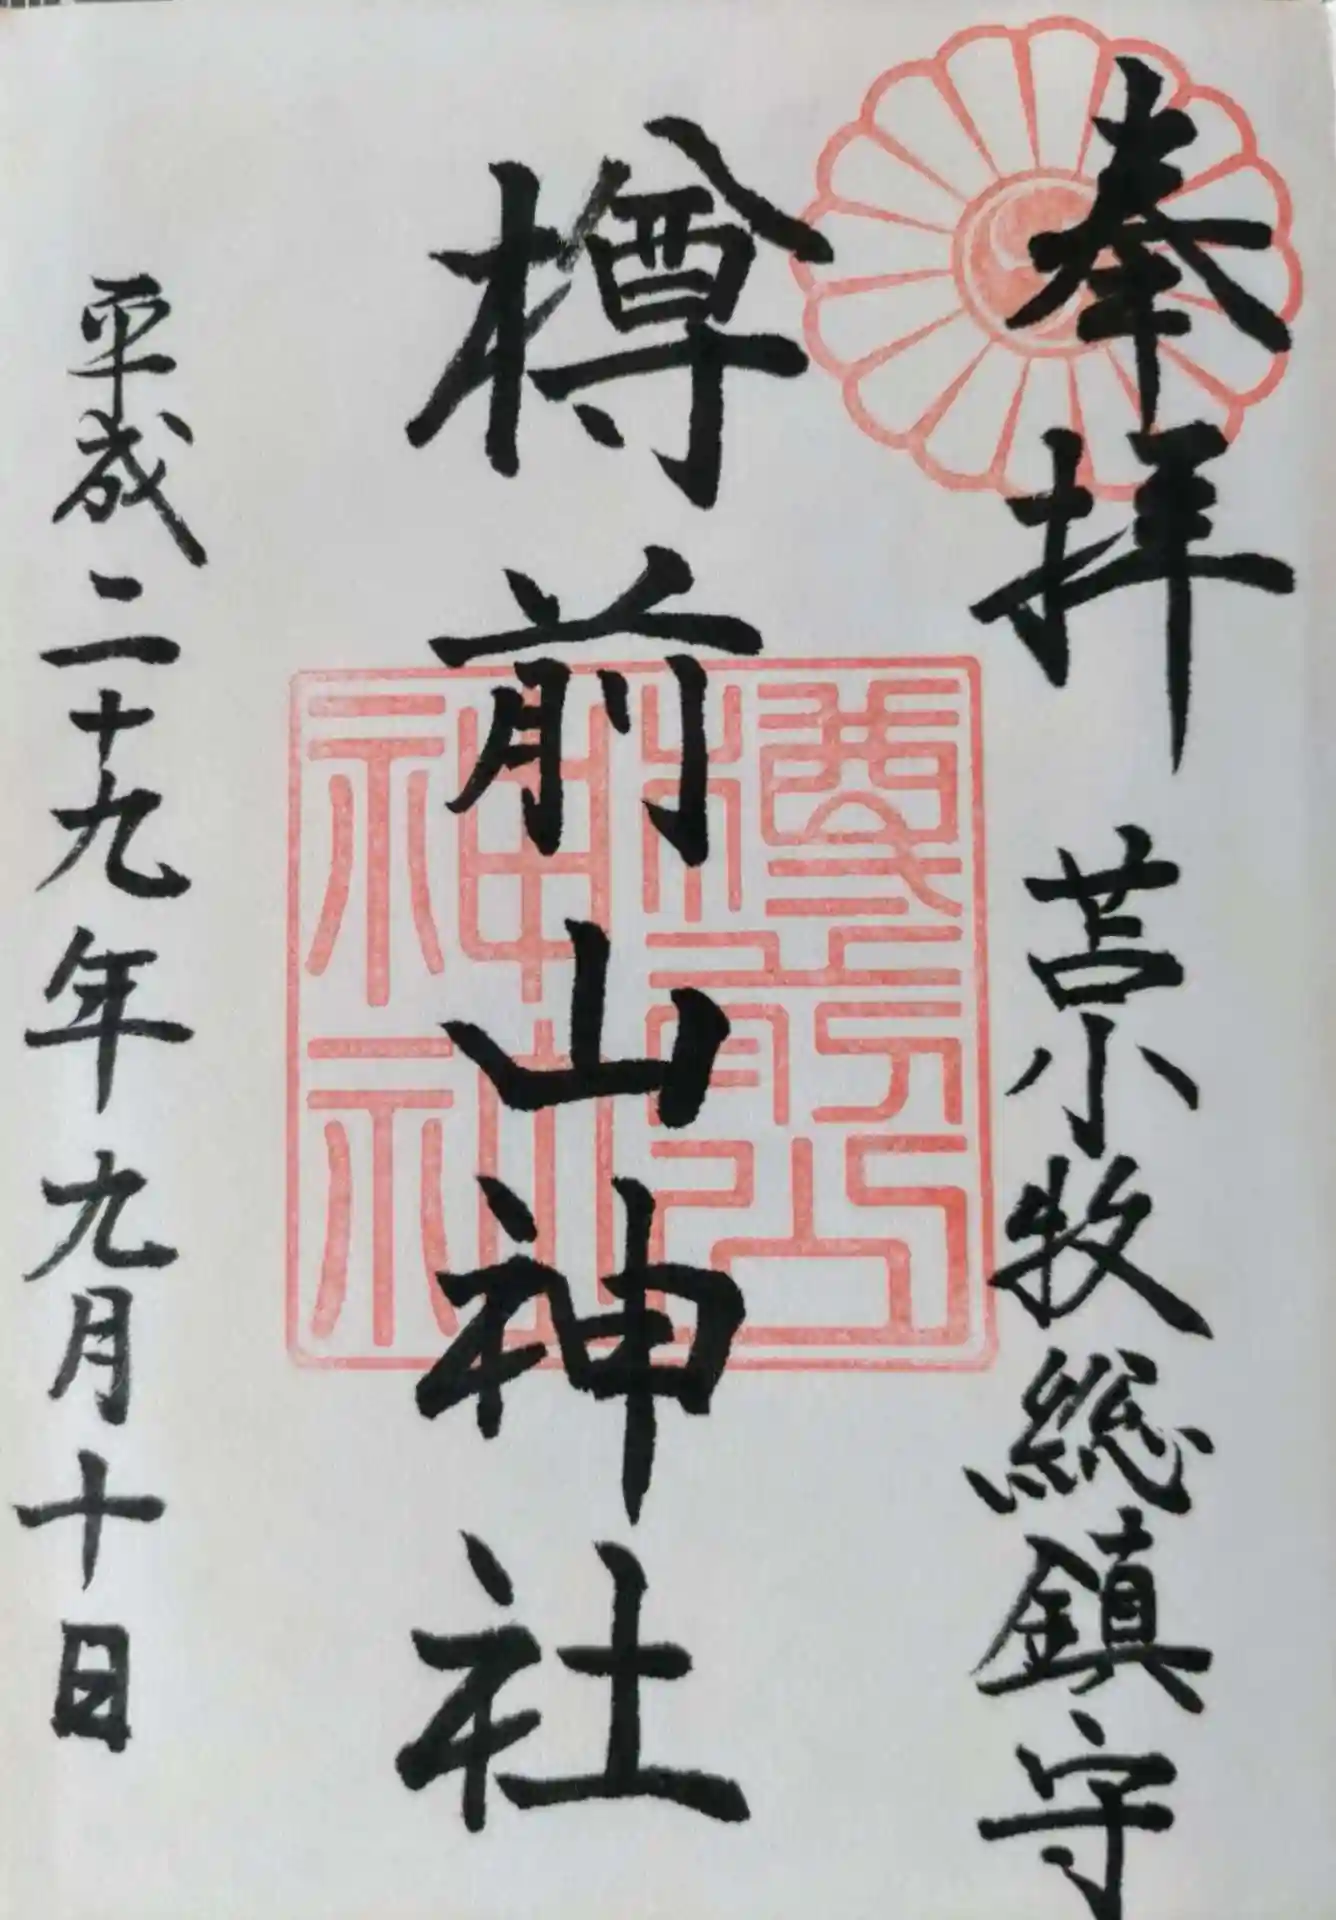 奉拝 苫小牧総鎮守
樽前山神社
平成二十九年九月十日
樽前山
神社